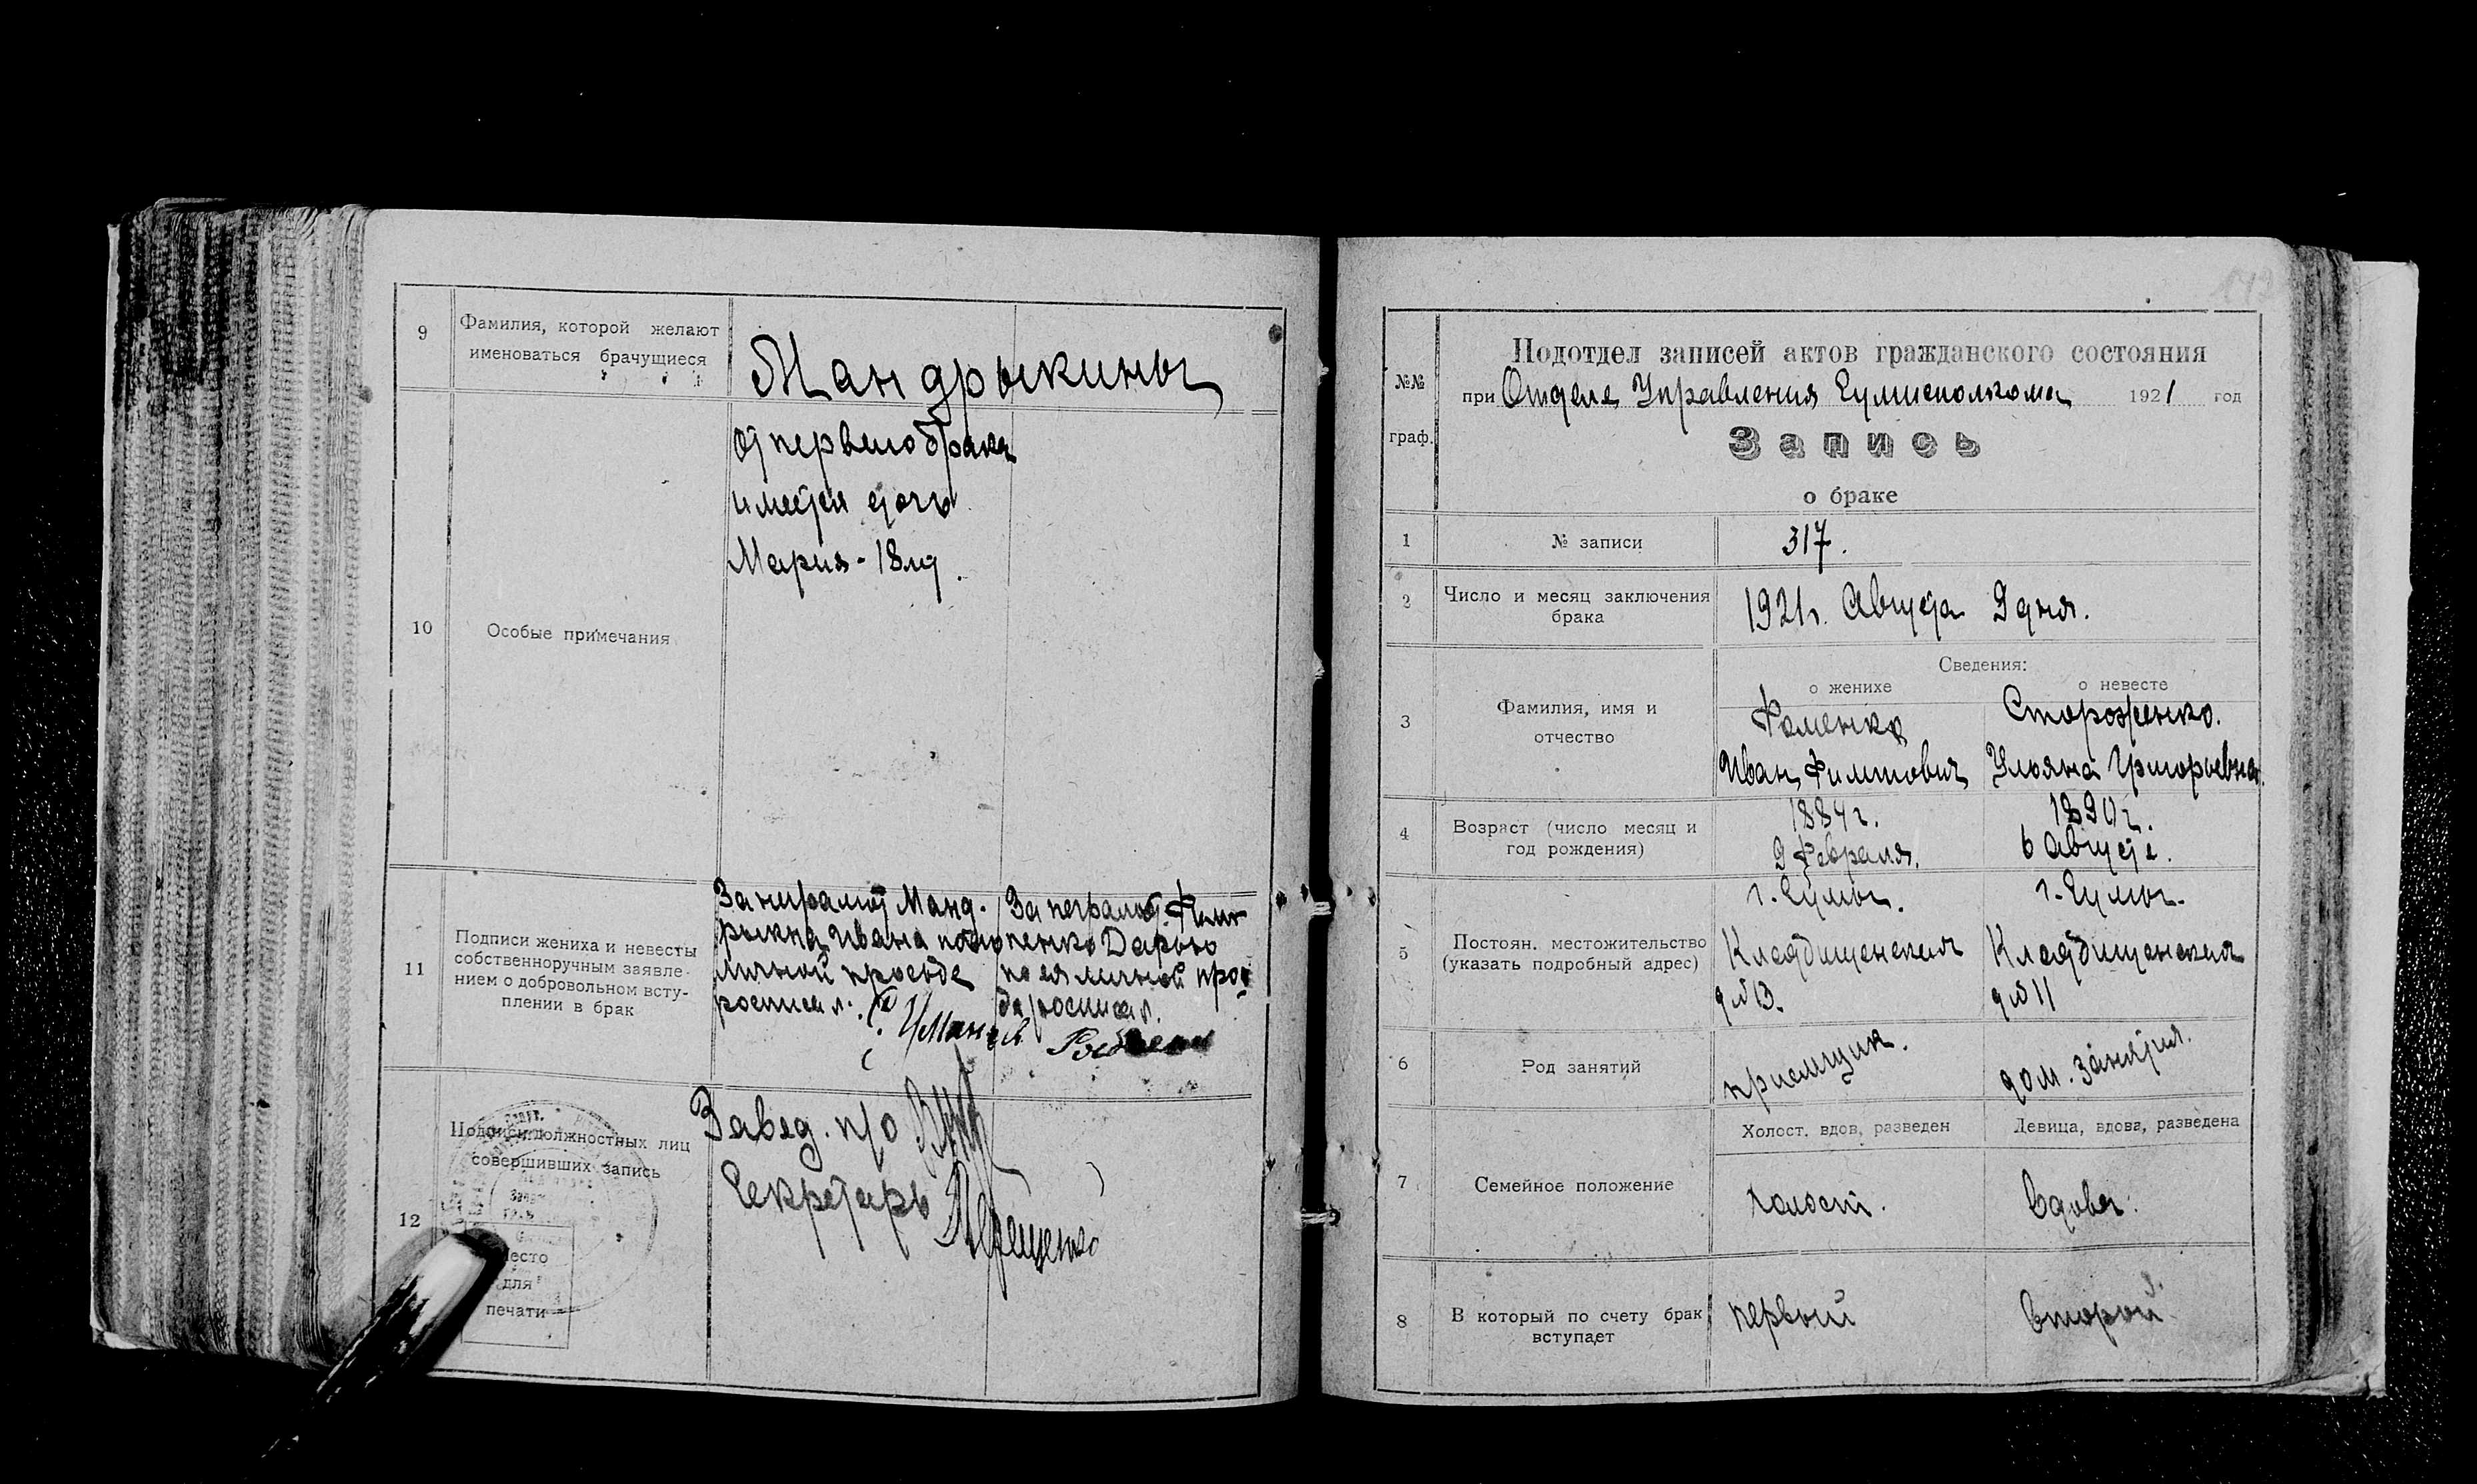 9
Фамилия, которой желают
именоваться брачущиеся
Мандрыкины
10
Особые примечания
От первого брака
имеется дочь
Мария - 18 лет.
11
Подписи жениха и невесты
собственноручным заявле-
нием о добровольном всту-
плении в брак
За неграмот. Манд-
рыкина Ивана по его
личной просьбе
росписал.
За неграмот.
пенко Дарью
по ея личной прос
бе росписал.
12
Подписи должностных лиц
совершивших запись
Место
для
печати
Завед. п/о
Секретарь
№№
граф.
Подотдел записей актов гражданского состояния
при Отделе Управления Сумисполкома 1921 год
Запись
о браке
1
№ записи
317.
2
Число и месяц заключения
брака
1921г. Августа 9 дня.
Сведения:
о женихе
о невесте
3
Фамилия, имя и
отчество
Фоменко
Иван
Стороженко.
Ульяна Григорьевна.
4
Возраст (число месяц и
год рождения)
1884 г.
9 Февраля.
1890 г.
6 Августа.
5
Постоян. местожительство
(указать подробный адрес)
г. Сумы.
Кладбищенская
д № 13.
г. Сумы.
Кладбищенская
д № 11
6
Род занятий
приемщик.
дом. занятия.
7
Семейное положение
Холост, вдов, разведен
Девица, вдова, разведена
холост.
вдова.
8
В который по счету брак
вступает
первый
второй